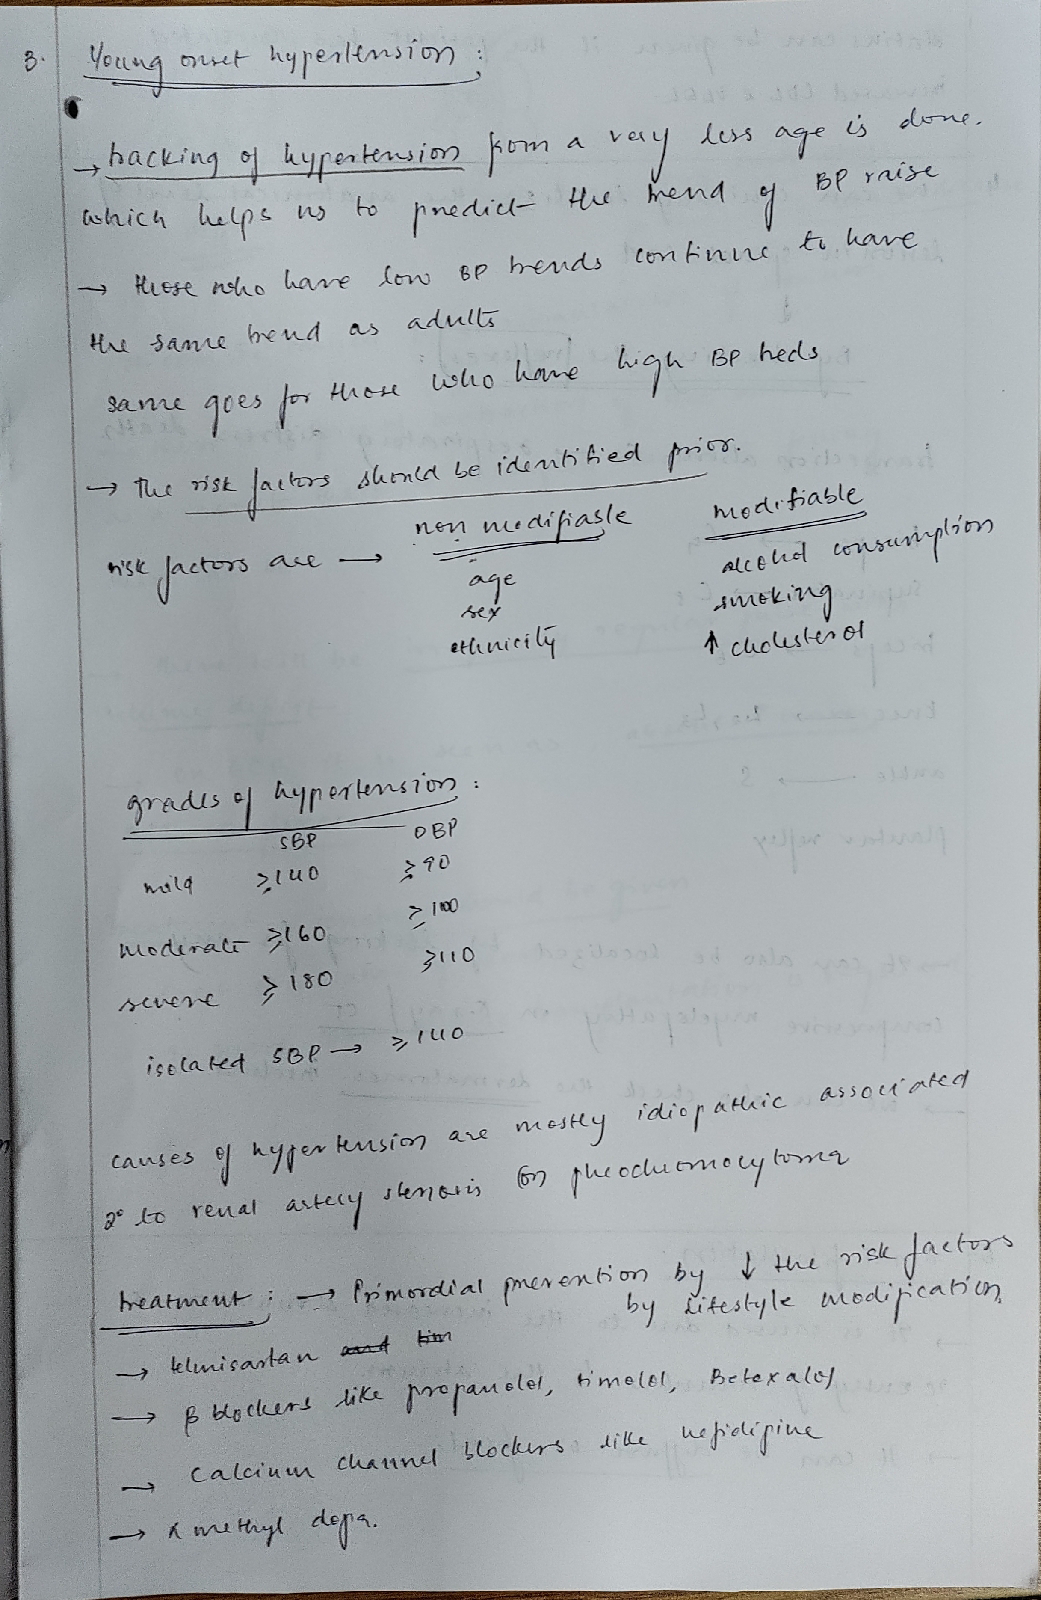 3. Young onset hypertension :
→ tracking of hypertension from a very less age is done.
which helps us to predict the trend of BP raise
→ those who have low BP trends continue to have
the same trend as adults
same goes for those who have high BP treds
→ The risk factors should be identified prior.
risk factors are → non modifiable modifiable
age alcohol consumption
sex smoking
ethnicity ↑ cholesterol
grades of hypertension :
SBP DBP
mild ≥140 ≥90
moderate ≥160 ≥100
severe ≥180 ≥110
isolated SBP → ≥140
causes of hypertension are mostly idiopathic associated
2° to renal artery stenosis (or) pheochromocytoma
treatment : → Primordial prevention by ↓ the risk factors
by lifestyle modification
→ telmisartan and tim
→ β blockers like propanolol, timolol, Betaxalol
→ Calcium channel blockers like nefidipine
→ α methyl dopa.